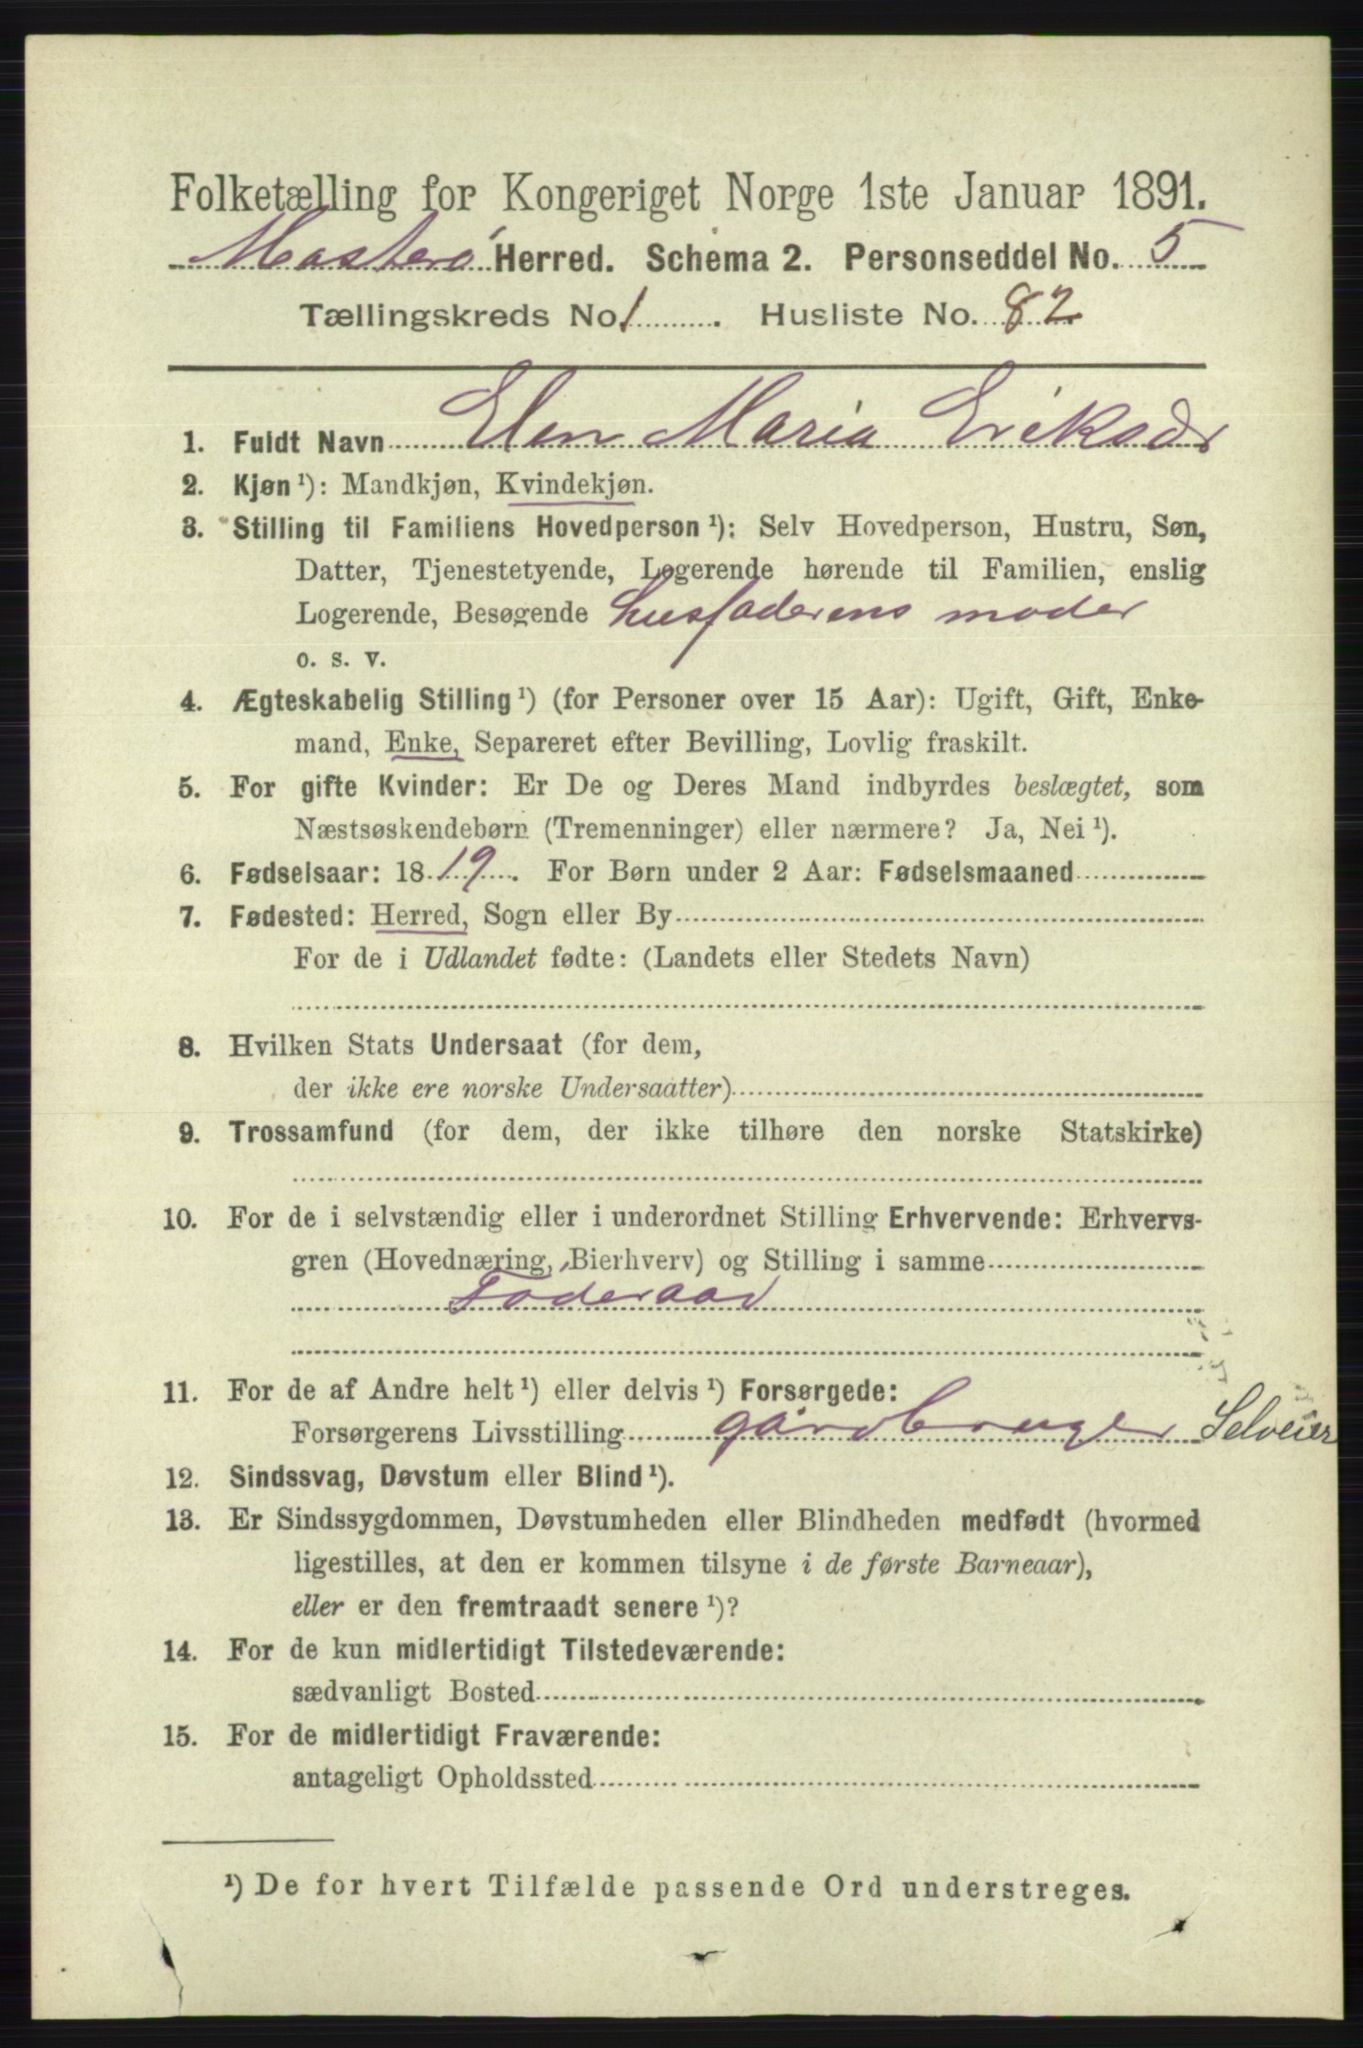 Folketælling for Kongeriget Norge 1ste Januar 1891.
Masterø Herred. Schema 2. Personseddel No. 5
Tællingskreds No. 1. Husliste No. 82
1. Fuldt Navn Elen Maria Eriksdr
2. Kjøn ¹): Mandkjøn, Kvindekjøn.
3. Stilling til Familiens Hovedperson ¹): Selv Hovedperson, Hustru, Søn,
Datter, Tjenestetyende, Logerende hørende til Familien, enslig
Logerende, Besøgende husfaderens moder
o. s. v.
4. Ægteskabelig Stilling ¹) (for Personer over 15 Aar): Ugift, Gift, Enke-
mand, Enke, Separeret efter Bevilling, Lovlig fraskilt.
5. For gifte Kvinder: Er De og Deres Mand indbyrdes beslægtet, som
Næstsøskendebørn (Tremenninger) eller nærmere? Ja, Nei ¹).
6. Fødselsaar: 1819. For Børn under 2 Aar: Fødselsmaaned
7. Fødested: Herred, Sogn eller By
For de i Udlandet fødte: (Landets eller Stedets Navn)
8. Hvilken Stats Undersaat (for dem,
der ikke ere norske Undersaatter)
9. Trossamfund (for dem, der ikke tilhøre den norske Statskirke)
10. For de i selvstændig eller i underordnet Stilling Erhvervende: Erhvervs-
gren (Hovednæring, Bierhverv) og Stilling i samme
Foderaad
11. For de af Andre helt ¹) eller delvis ¹) Forsørgede:
Forsørgerens Livsstilling gårdbruger Selveier
12. Sindssvag, Døvstum eller Blind ¹).
13. Er Sindssygdommen, Døvstumheden eller Blindheden medfødt (hvormed
ligestilles, at den er kommen tilsyne i de første Barneaar),
eller er den fremtraadt senere ¹)?
14. For de kun midlertidigt Tilstedeværende:
sædvanligt Bosted
15. For de midlertidigt Fraværende:
antageligt Opholdssted
¹) De for hvert Tilfælde passende Ord understreges.